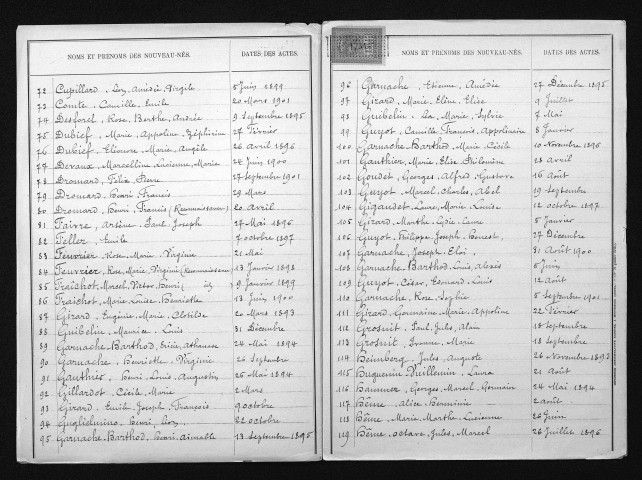 NOMS ET PRENOMS DES NOUVEAU-NÉS. DATES DES ACTES.
72 Cupillard, Léon, Amédée, Virgile 5 Juin 1899
73 Comte, Camille, Emile 20 Mars 1901
74 Desforet, Rose, Berthe, Andrée 9 Septembre 1895
75 Dubief, Marie, Appoline, Zéphirine 27 Février
76 Dubief, Eléonore, Marie, Angèle 26 Avril 1896
77 Devaux, Marcelline, Lucienne, Marie 22 Juin 1900
78 Dromard, Félix, Pierre 27 Septembre 1901
79 Dromard, Henri, Francis 29 Mars
80 Dromard, Henri, Francis (Reconnaissance) 20 Avril
81 Faivre, Arsène, Paul, Joseph 27 Mai 1896
82 Feller, Emile 7 Octobre 1897
83 Feuvrier, Rose, Marie, Virginie 21 Mai
84 Feuvrier, Rose, Marie, Virginie (Reconnaissance) 13 Janvier 1898
85 Fraichot, Marcel, Victor, Henri 9 Janvier 1899
86 Fraichot, Marie, Louise, Henriette 13 Juin 1900
87 Girard, Eugénie, Marie, Clotilde 20 Mars 1893
88 Guibelin, Maurice, Louis 31 Décembre
89 Garnache-Barthod, Elisie, Athanase 24 Mai 1894
90 Garnache, Henriette, Virginie 26 Septembre
91 Gauthier, Henri, Louis, Augustin 26 Mai 1894
92 Gillardot, Cécile, Marie 2 Mars
93 Girard, Emile, Joseph, François 9 Octobre
94 Guglielmino, Henri, Léon 22 Octobre
95 Garnache-Barthod, Henri, Aimable 13 Septembre 1895
NOMS ET PRENOMS DES NOUVEAU-NÉS. DATES DES ACTES.
96 Garnache, Etienne, Amédée 27 Décembre 1895
97 Girard, Marie, Eline, Elise 9 Juillet
98 Guibelin, Léa, Marie, Sylvie 7 Mai
99 Guyot, Camille, François, Appolinaire 8 Janvier
100 Garnache-Barthod, Marie, Cécile 10 Novembre 1896
101 Gauthier, Marie, Elise, Philomène 18 Avril
102 Goudet, Georges, Alfred, Gustave 16 Août
103 Guyot, Marcel, Charles, Abel 19 Septembre
104 Gigandet, Laure, Marie, Louise 12 Octobre 1897
105 Girard, Marthe, Lydie, Laure 5 Janvier
106 Guyot, Philippe, Joseph, Honest 27 Décembre
107 Garnache, Joseph, Eloi 31 Août 1900
108 Garnache-Barthod, Louis, Alexis 6 Juin
109 Guyot, César, Edouard, Louis 12 Août
110 Garnache, Rose, Sophie 5 Septembre 1901
111 Girard, Germaine, Marie, Appoline 22 Février
112 Grosnit, Paul, Jules, Alain 18 Septembre
113 Grosnit, Ivonne, Marie 18 Septembre
114 Heimberg, Jules, Auguste 26 Novembre 1893
115 Huguenin-Vuillemin, Laura 21 Août
116 Haumier, Georges, Marcel, Germain 24 Mai 1894
117 Hême, Alice, Herminie 2 Août
118 Hême, Marie, Marthe, Lucienne 26 Juin
119 Hême, Octave, Jules, Marcel 26 Juillet 1896